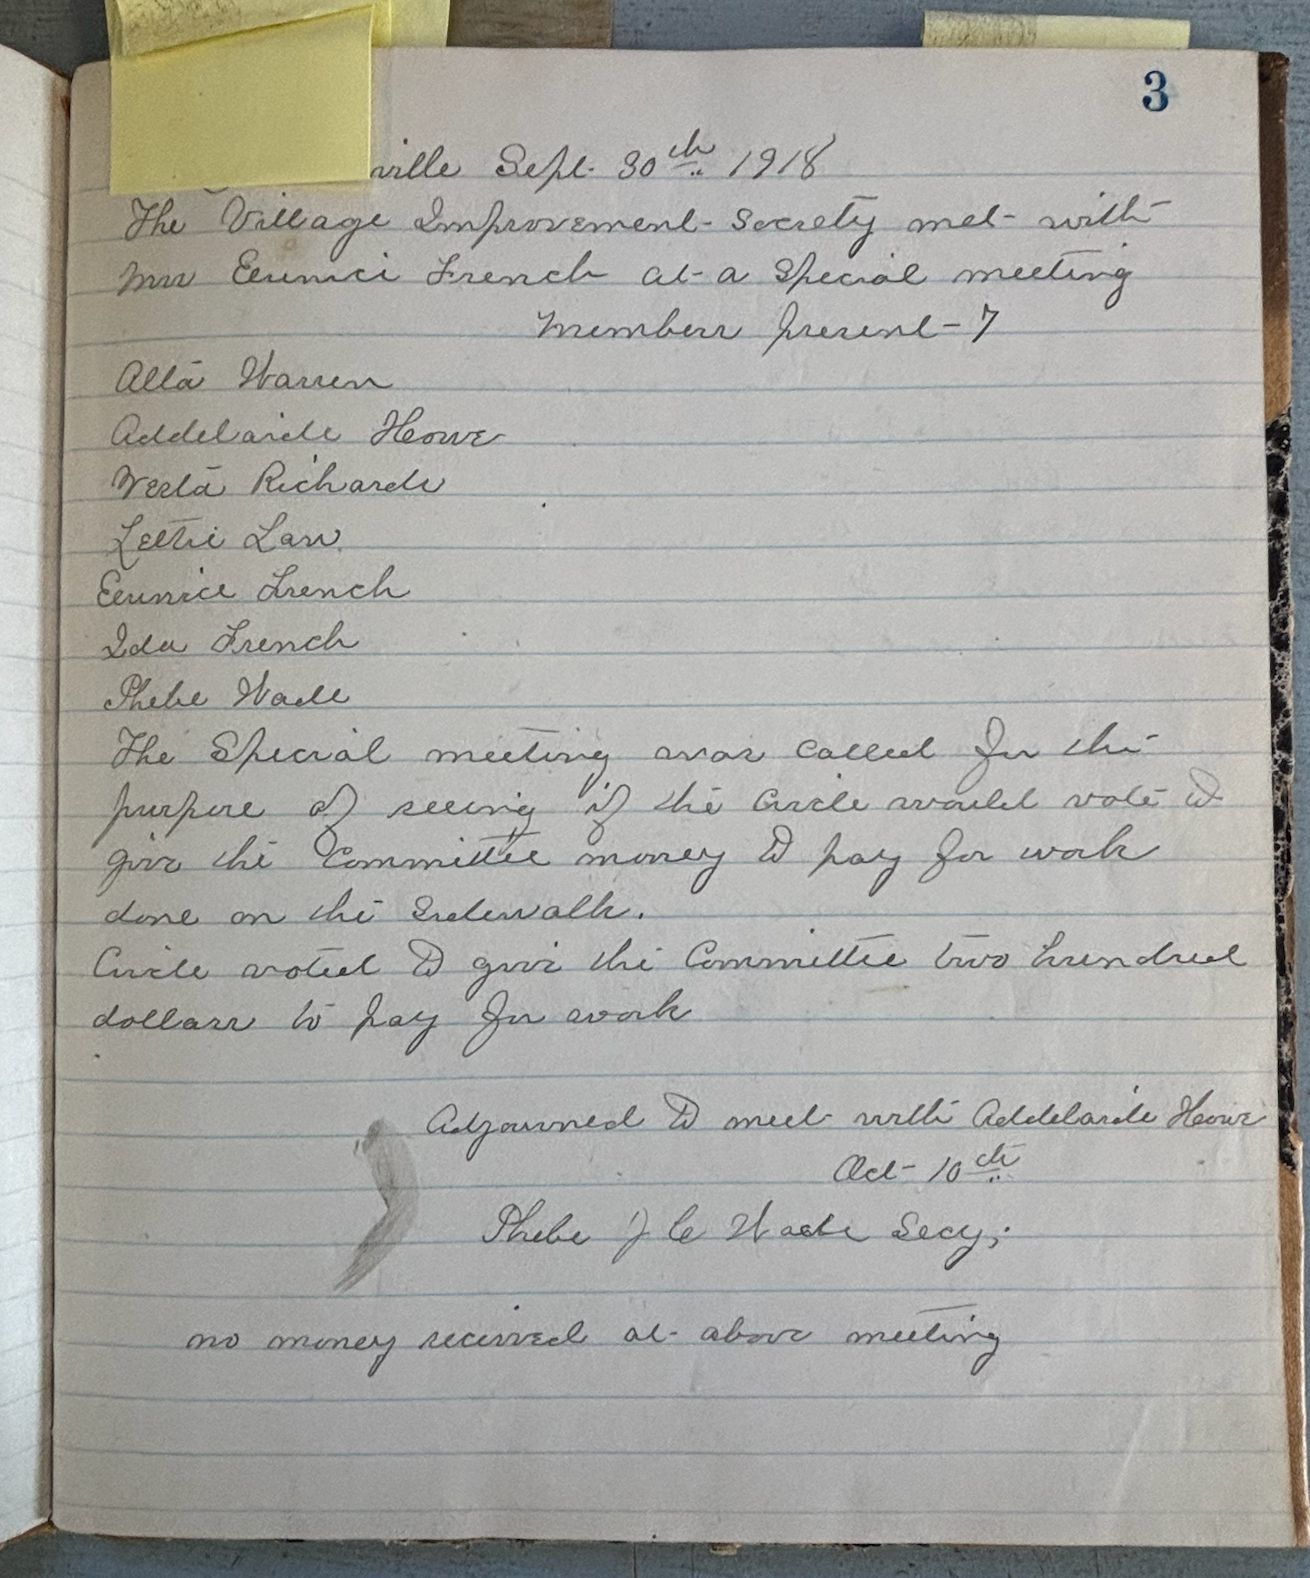 3
ville Sept. 30th 1918
The Village Improvement Society met with
Mrs Eeunici French at a special meeting
Members present - 7
Alta Warren
Addelaide Howe
Verta Richards
Lettie Law
Eeunice French
Ida French
Phebe Wade
The Special meeting was called for the
purpose of seeing if the Circle would vote to
give the Committee money to pay for work
done on the sidewalk.
Circle voted to give the Committee two hundred
dollars to pay for work
Adjourned to meet with Addelaide Howe
Oct 10th
Phebe J C Wade Secy;
no money received at above meeting